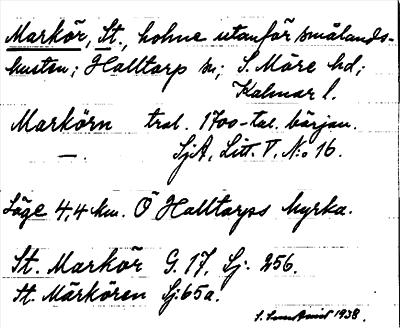 Markör, St., holme utanför smålands-
kusten; Halltorp sn; S. Möre hd;
Kalmar l.
Markörn tral. 1700-tal. början.
—. SjA, Litt. V, N:o 16.
Läge 4,4 km. Ö Halltorps kyrka.
St. Markör G. 17, Sj. 256.
St. Märkören Sj: 65a.
1938.